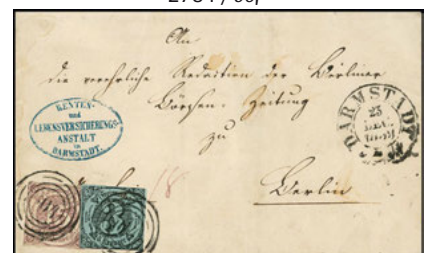 An
die verehrliche Redaction der Berliner
Börsen-Zeitung
zu
Berlin
RENTEN-
und
LEBENSVERSICHERUNGS-
ANSTALT
in
DARMSTADT.
DARMSTADT
25
DEC.
18